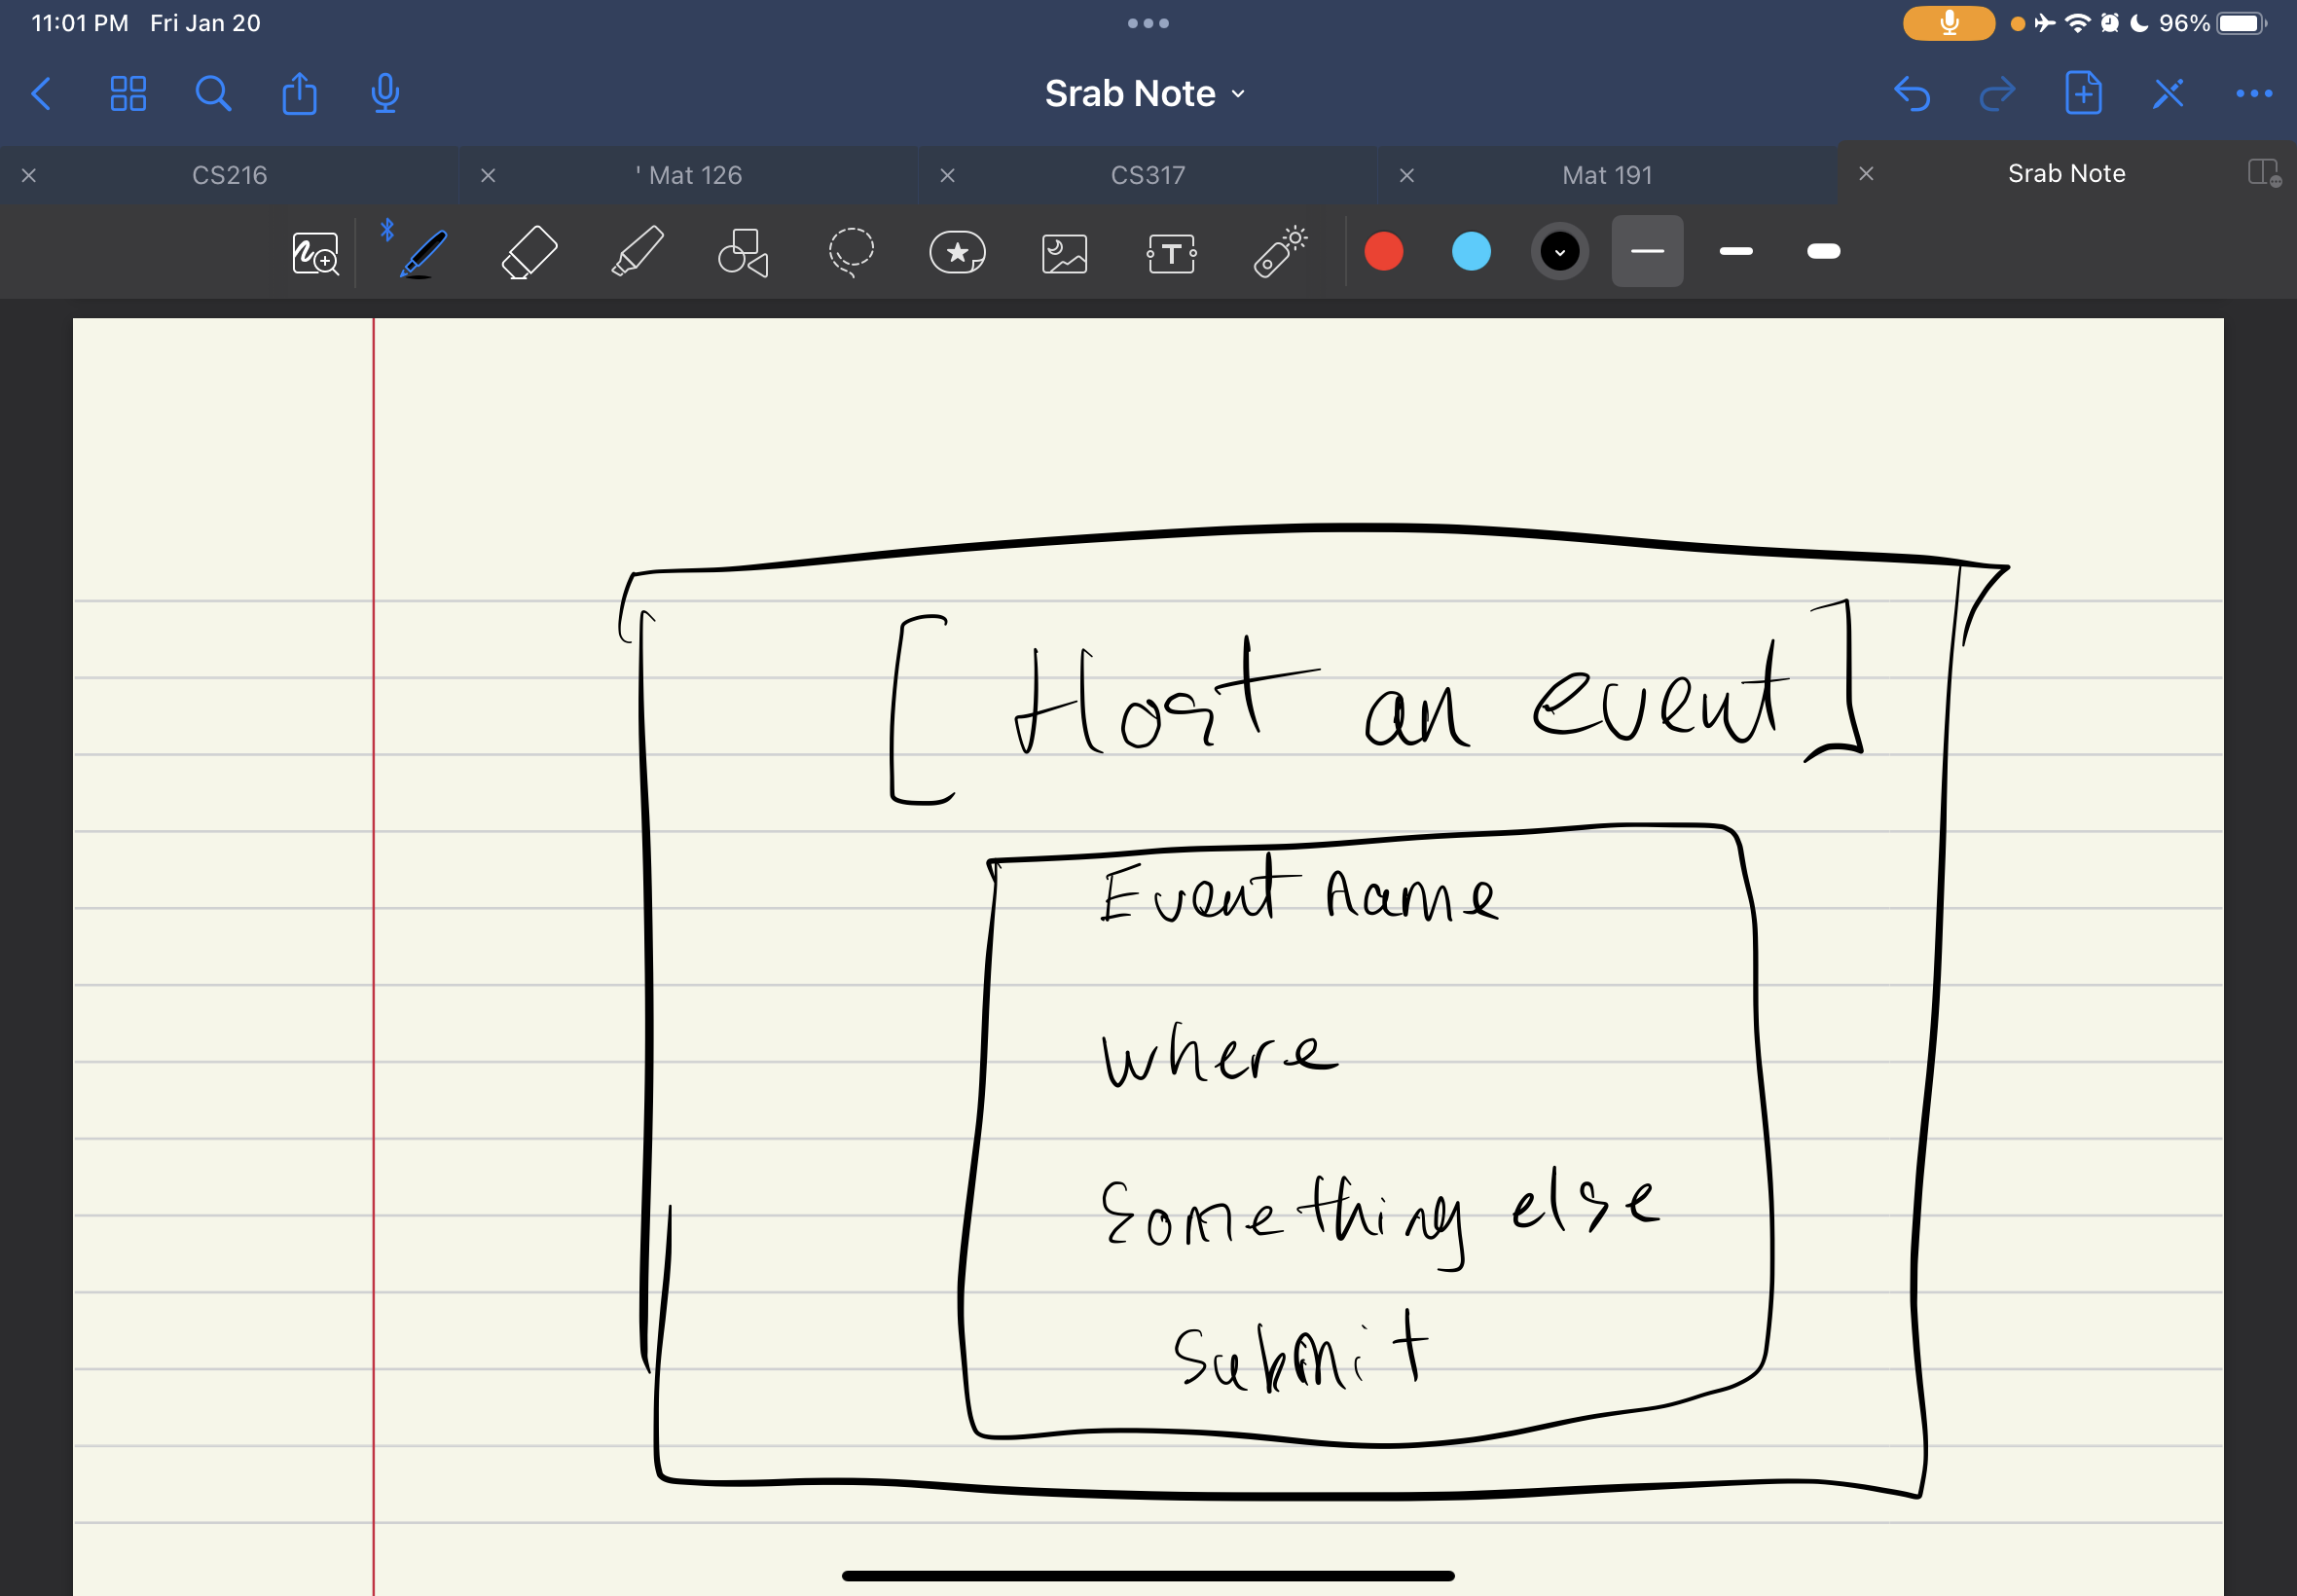 11:01 PM Fri Jan 20
96%
Srab Note
CS216
' Mat 126
CS317
Mat 191
Srab Note
T
[Host an event]
Event name
where
Something else
Submit